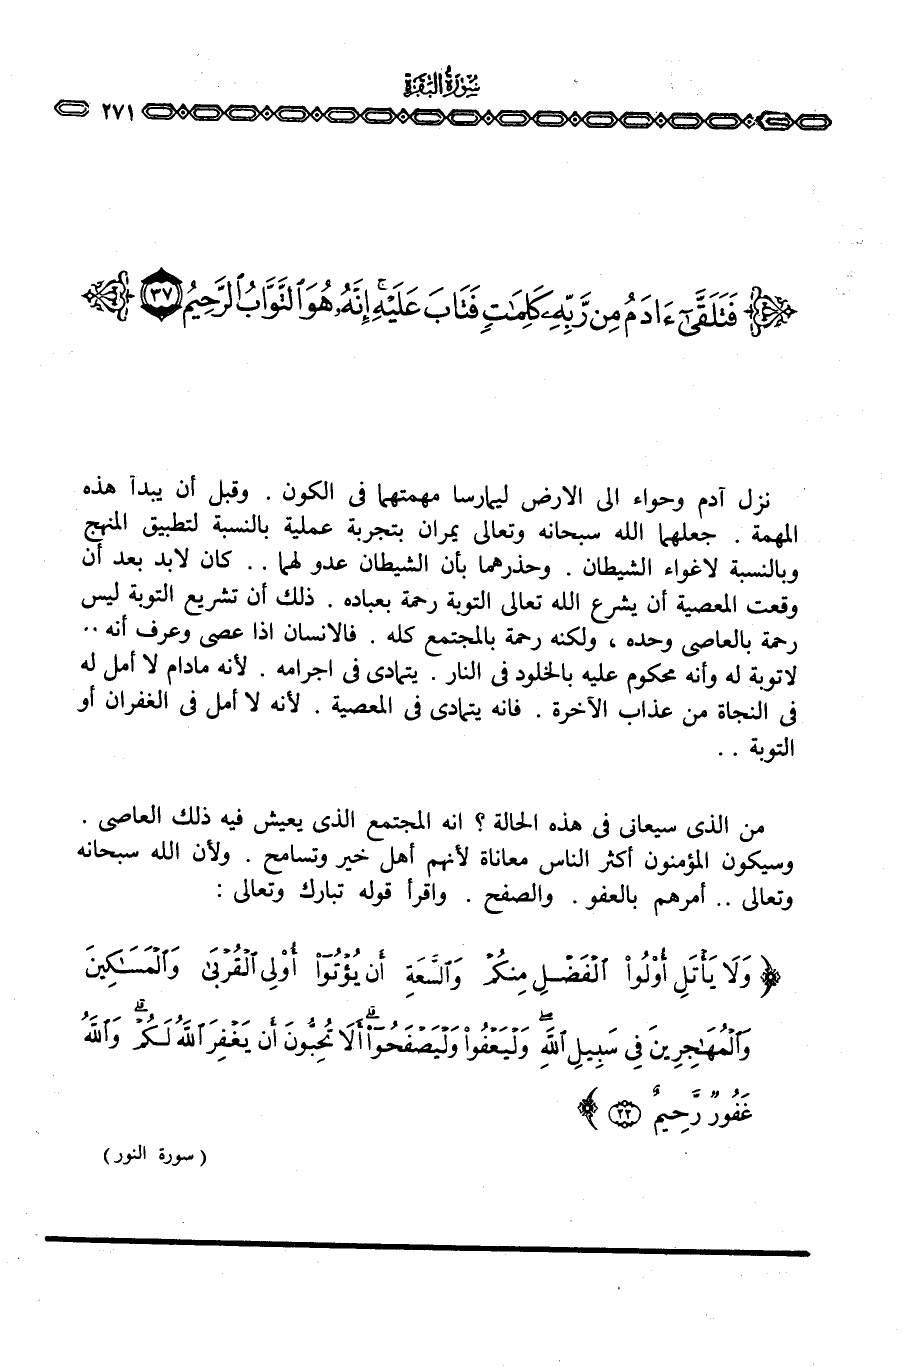 سورة البقرة
٢٧١
فَتَلَقَّىٰٓ ءَادَمُ مِن رَّبِّهِۦ كَلِمَٰتٍ فَتَابَ عَلَيْهِ ۚ إِنَّهُۥ هُوَ ٱلتَّوَّابُ ٱلرَّحِيمُ ٣٧
نزل آدم وحواء الى الارض ليمارسا مهمتهما فى الكون . وقبل أن يبدآ هذه
المهمة . جعلهما الله سبحانه وتعالى يمران بتجربة عملية بالنسبة لتطبيق المنهج
وبالنسبة لاغواء الشيطان . وحذرهما بأن الشيطان عدو لهما .. كان لابد بعد أن
وقعت المعصية أن يشرع الله تعالى التوبة رحمة بعباده . ذلك أن تشريع التوبة ليس
رحمة بالعاصى وحده ، ولكنه رحمة بالمجتمع كله . فالانسان اذا عصى وعرف أنه ..
لاتوبة له وأنه محكوم عليه بالخلود فى النار . يتمادى فى اجرامه . لأنه مادام لا أمل له
فى النجاة من عذاب الآخرة . فانه يتمادى فى المعصية . لأنه لا أمل فى الغفران أو
التوبة ..
من الذى سيعانى فى هذه الحالة ؟ انه المجتمع الذى يعيش فيه ذلك العاصى .
وسيكون المؤمنون أكثر الناس معاناة لأنهم أهل خير وتسامح . ولأن الله سبحانه
وتعالى .. أمرهم بالعفو . والصفح . واقرأ قوله تبارك وتعالى :
﴿ وَلَا يَأْتَلِ أُو۟لُوا۟ ٱلْفَضْلِ مِنكُمْ وَٱلسَّعَةِ أَن يُؤْتُوٓا۟ أُو۟لِى ٱلْقُرْبَىٰ وَٱلْمَسَٰكِينَ
وَٱلْمُهَٰجِرِينَ فِى سَبِيلِ ٱللَّهِ ۖ وَلْيَعْفُوا۟ وَلْيَصْفَحُوٓا۟ ۗ أَلَا تُحِبُّونَ أَن يَغْفِرَ ٱللَّهُ لَكُمْ ۗ وَٱللَّهُ
غَفُورٌ رَّحِيمٌ ٢٢ ﴾
( سورة النور )